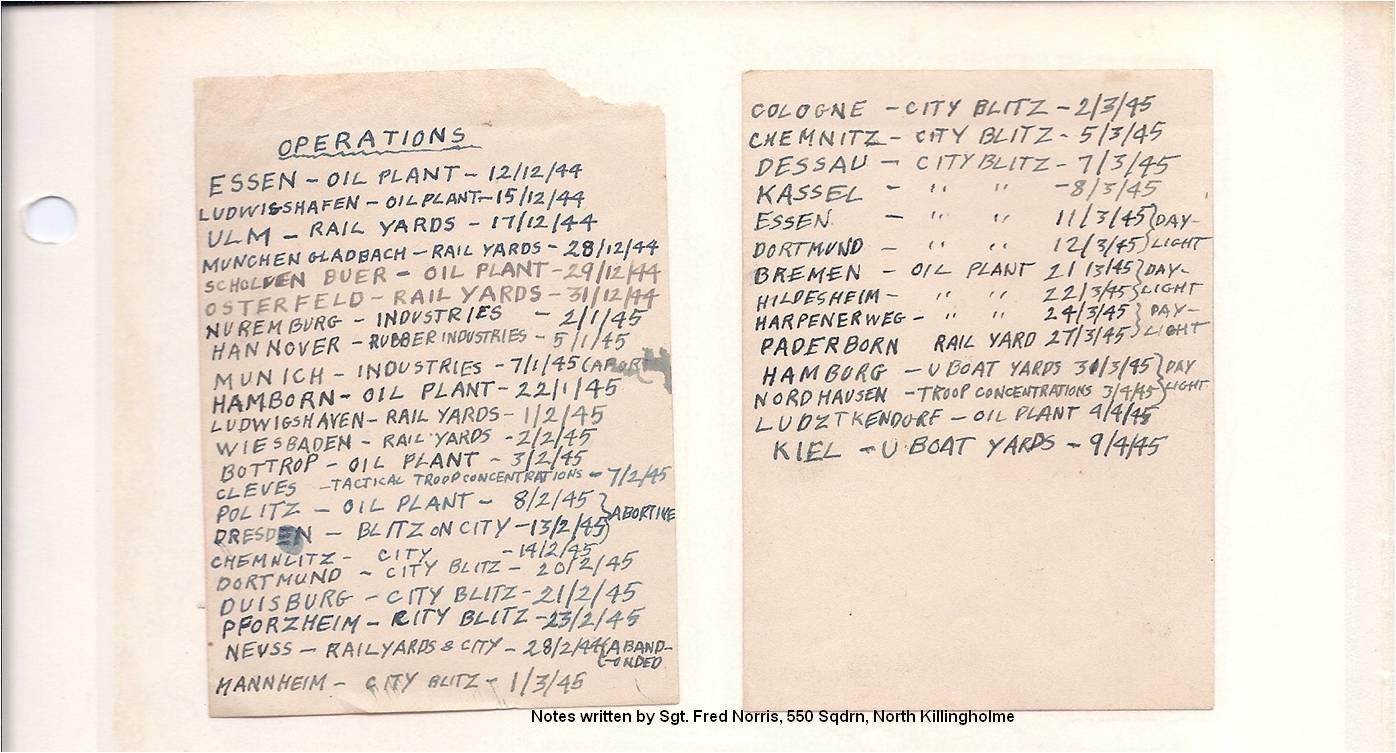 OPERATIONS
ESSEN - OIL PLANT - 12/12/44
LUDWIGSSHAFEN - OIL PLANT - 15/12/44
ULM - RAIL YARDS - 17/12/44
MUNCHEN GLADBACH - RAIL YARDS - 28/12/44
SCHOLDEN BUER - OIL PLANT - 29/12/44
OSTERFELD - RAIL YARDS - 31/12/44
NUREMBURG - INDUSTRIES - 2/1/45
HANNOVER - RUBBER INDUSTRIES - 5/1/45
MUNICH - INDUSTRIES - 7/1/45
HAMBORN - OIL PLANT - 22/1/45
LUDWIGSHAVEN - RAIL YARDS - 1/2/45
WIESBADEN - RAIL YARDS - 2/2/45
BOTTROP - OIL PLANT - 3/2/45
CLEVES - TACTICAL TROOP CONCENTRATIONS - 7/2/45
POLITZ - OIL PLANT - 8/2/45 } ABORTIVE
DRESDEN - BLITZ ON CITY - 13/2/45
CHEMNLITZ - CITY - 14/2/45
DORTMUND - CITY BLITZ - 20/2/45
DUISBURG - CITY BLITZ - 21/2/45
PFORZHEIM - CITY BLITZ - 23/2/45
NEUSS - RAILYARDS & CITY - 28/2/44 (ABAND-
ONDED
MANNHEIM - CITY BLITZ - 1/3/45
COLOGNE - CITY BLITZ - 2/3/45
CHEMNITZ - CITY BLITZ - 5/3/45
DESSAU - CITY BLITZ - 7/3/45
KASSEL - " " - 8/3/45
ESSEN - " " 11/3/45 } DAY-
DORTMUND - " " 12/3/45 } LIGHT
BREMEN - OIL PLANT 21/3/45 } DAY-
HILDESHEIM - " " 22/3/45 } LIGHT
HARPENERWEG - " " 24/3/45 } DAY-
PADERBORN RAIL YARD 27/3/45 } LIGHT
HAMBURG - U BOAT YARDS 31/3/45 } DAY
NORDHAUSEN - TROOP CONCENTRATIONS 3/4/45 } LIGHT
LUDZTKENDORF - OIL PLANT 4/4/45
KIEL - U BOAT YARDS - 9/4/45
Notes written by Sgt. Fred Norris, 550 Sqdrn, North Killingholme